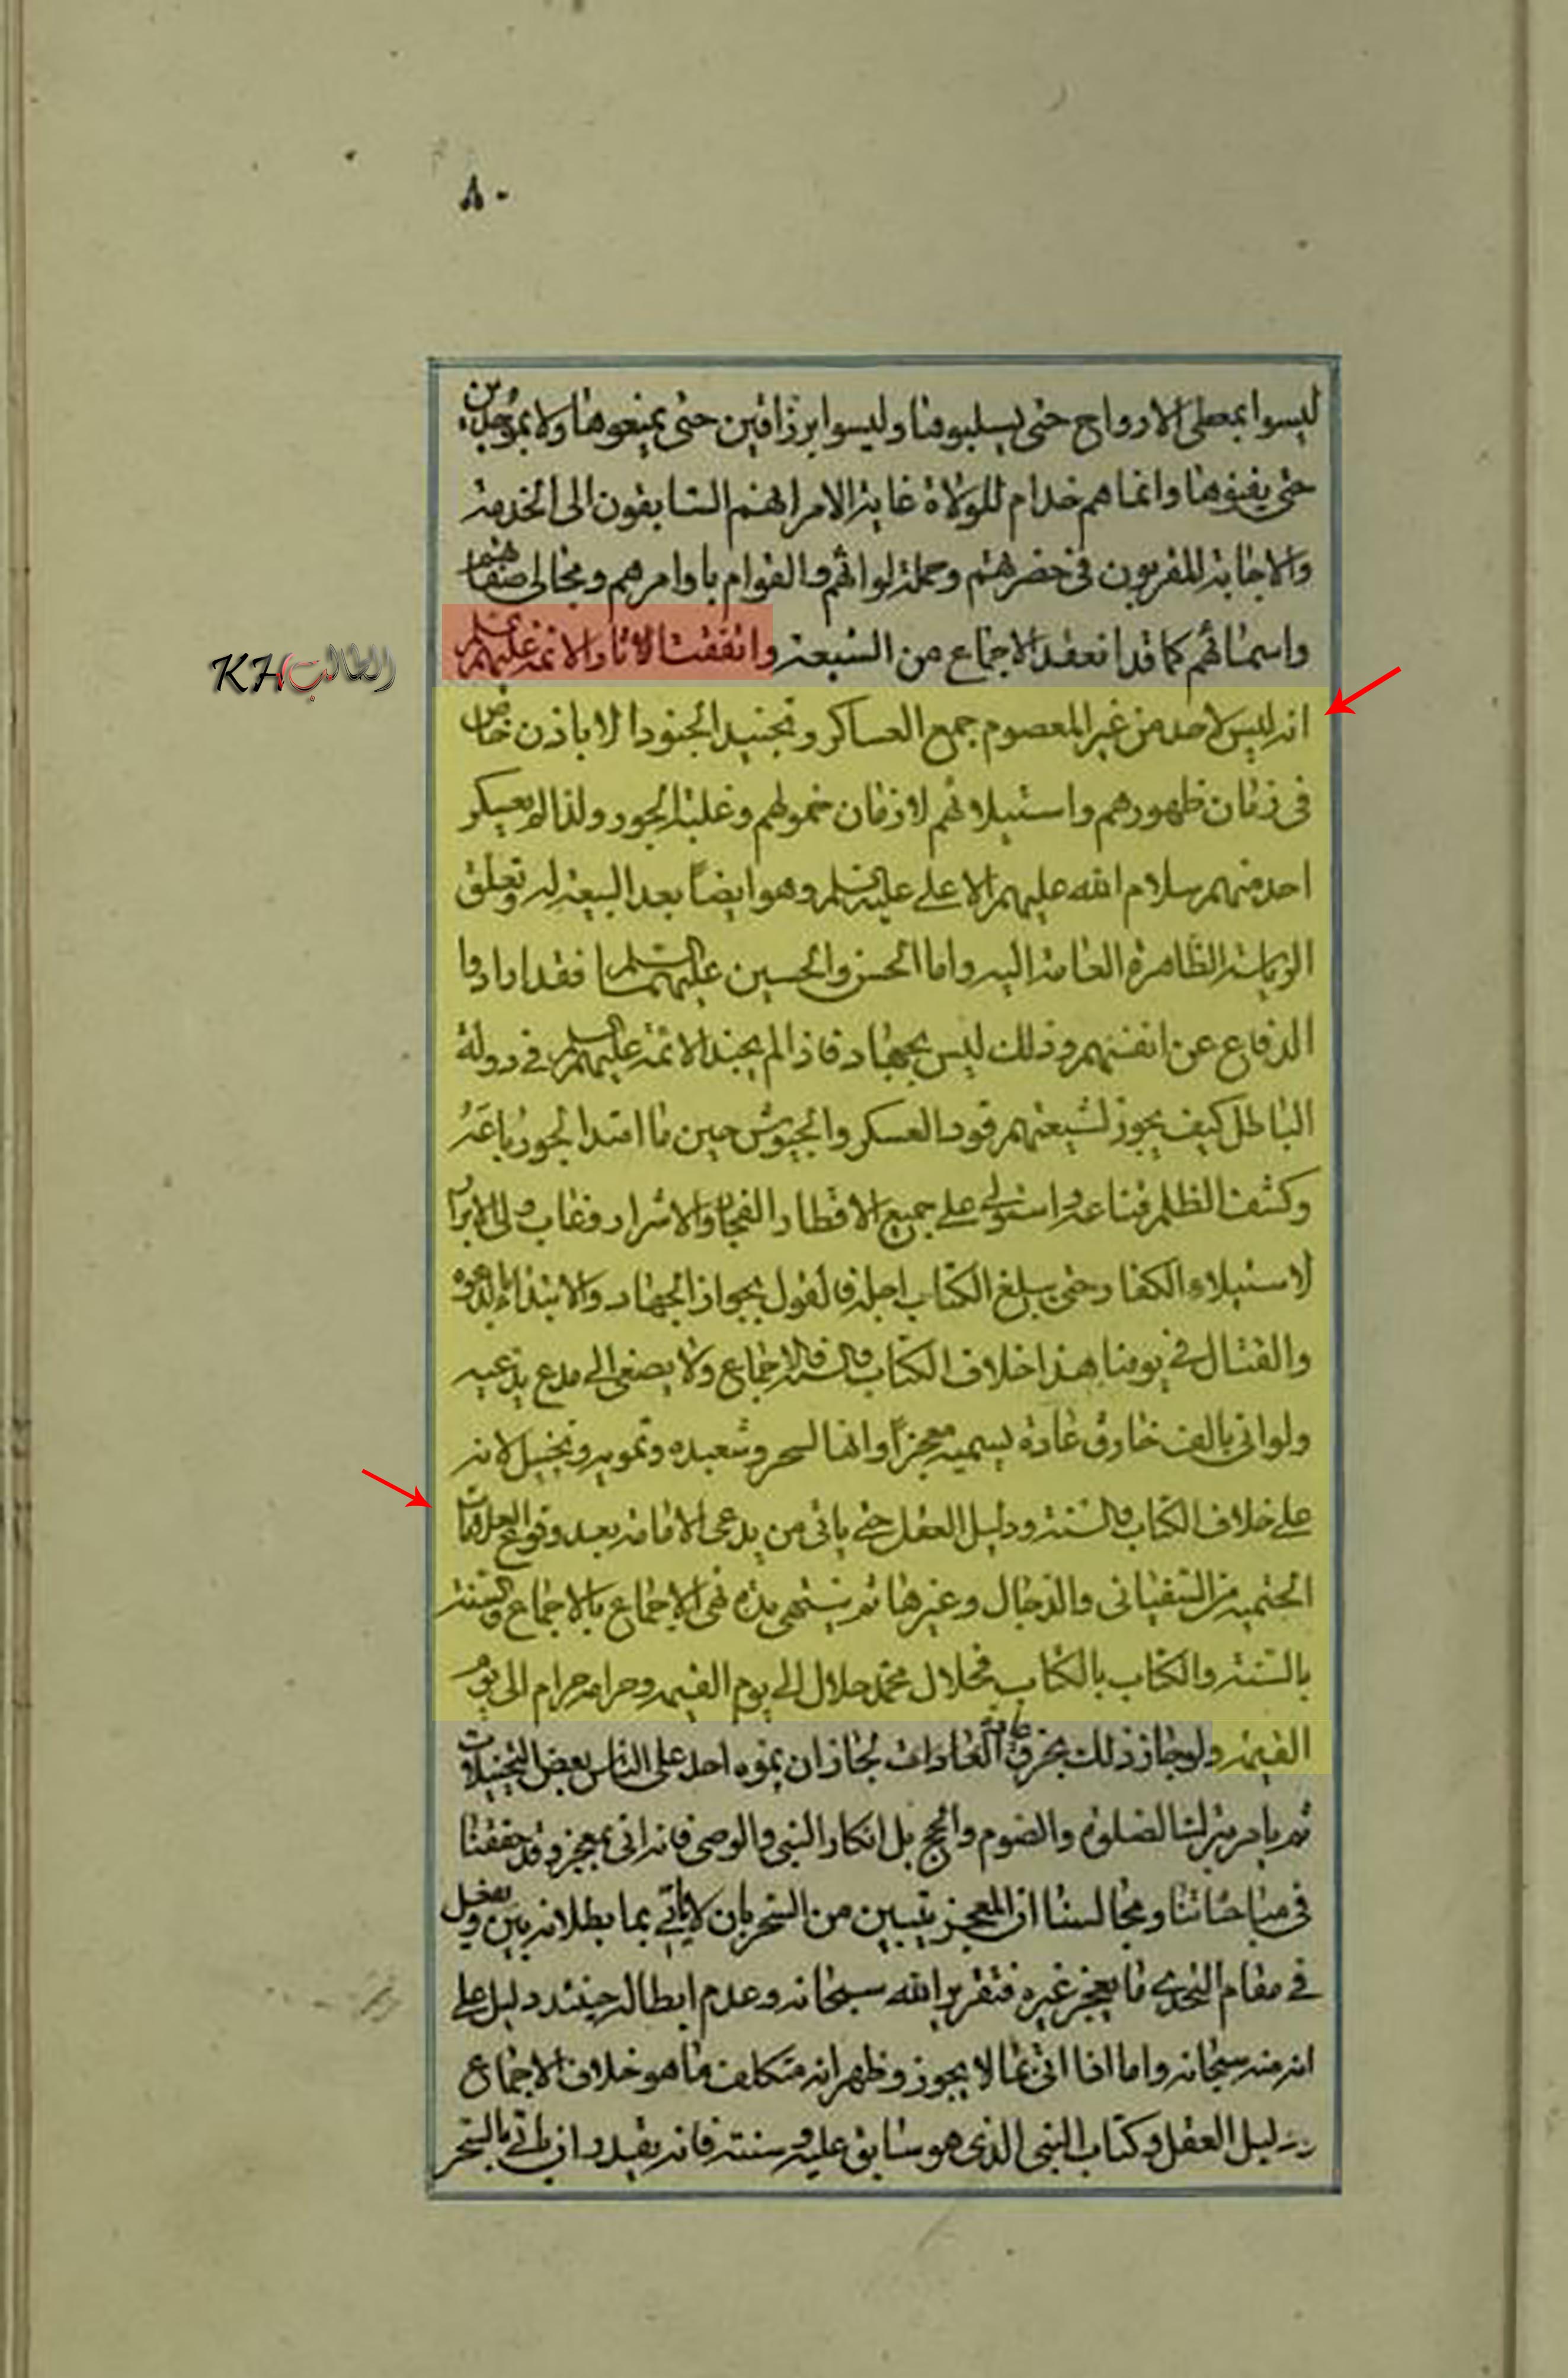 ٨٠
ليسوا بمعطى الارواح حتى يسلبوها وليسوا برزاقين حتى يمنعوها ولا بموجدين
حتى يفنوها وانما هم خدام للولاة غاية الامر انهم السابقون الى الخدمة
والاجابة المقربون فى حضرتهم وحملة لوائهم والقوام باوامرهم ومجالى صفاتهم
واسمائهم كما قد انعقد الاجماع من الشيعة واتفقت الاثار والائمة عليهم السلم
الطالب KH
انه ليس لاحد من غير المعصوم جمع العساكر وتجنيد الجنود الا باذن خاص
فى زمان ظهورهم واستيلائهم لا زمان خمولهم وغلبة الجور ولذا لم يعسكر
احد منهم سلام الله عليهم الا على عليه السلم وهو ايضاً بعد البيعة له وتعلق
الرياسة الظاهرة العامة اليه واما الحسن والحسين عليهما السلم فقد ارادوا
الدفاع عن انفسهم وذلك ليس بجهاد فاذا لم يجند الائمة عليهم السلم فى دولة
الباطل كيف يجوز لشيعتهم قود العسكر والجيوش حين ما امتد الجور باعه
وكشف الظلم قناعه واستولى على جميع الاقطار الفجار والاشرار وغاب ولى الابرار
لاستيلاء الكفار حتى يبلغ الكتاب اجله فالقول بجواز الجهاد والابتداء بالدعوة
والقتال فى يومنا هذا خلاف الكتاب والسنة والاجماع ولا يصغى الى مدع يدعيه
ولو اتى بالف خارق عادة يسميه معجزاً وانها لسحر وشعبده وتمويه وتخييل لانه
على خلاف الكتاب والسنة ودليل العقل حتى ياتى من يدعى الامامة بعد وقوع العلامات
الحتمية من السفيانى والدجال وغيرها ثم ينتهى بذه فهى الاجماع بالاجماع والسنة
بالسنة والكتاب بالكتاب فحلال محمد حلال الى يوم القيمة وحرامه حرام الى يوم
القيمة ولو جاز ذلك بخرق عامة العادات لجاز ان يموه احد على الناس بعض التخييلات
ثم يامر بترك الصلوة والصوم والحج بل انكار النبى والوصى فانه اتى بمعجز وقد حققنا
فى مباحثاتنا ومجالسنا ان المعجز يتبين من السحر بان لا ياتى بما بطلانه بين ويفعل
فى مقام التحدى ما يعجز غيره فتقرير الله سبحانه وعدم ابطاله حينئذ دليل على
انه منه سبحانه واما اذا اتى بما لا يجوز وظهر انه متكلف ما هو خلاف الاجماع
ودليل العقل وكتاب النبى الذى هو سابق عليه وسنته فانه يقدر ان ياتى بالسحر